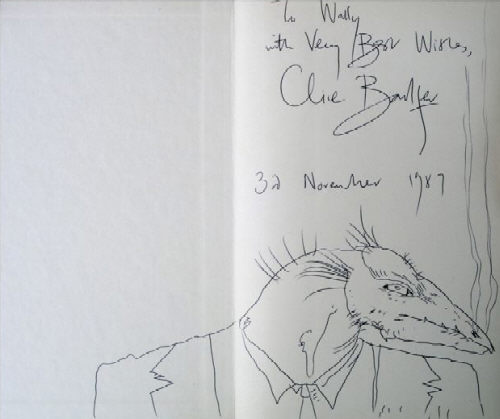 To Wally
with Very Best Wishes,
Clive Barker
3rd November 1987